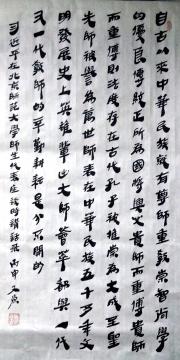 自古以來中華民族就有尊師重傳崇智尚學
的優良傳統正所為國將興必貴師而重傅貴師
而重傅則法度存在古代孔子被推崇為大成至聖
先師被譽為萬世師表在中華民族五千多年文
明發展史上英雄輩出大師薈萃都與一代
又一代教師的辛勤耕耘是分不開的
習近平在北京師范大學師生代表座談時講話 丙申